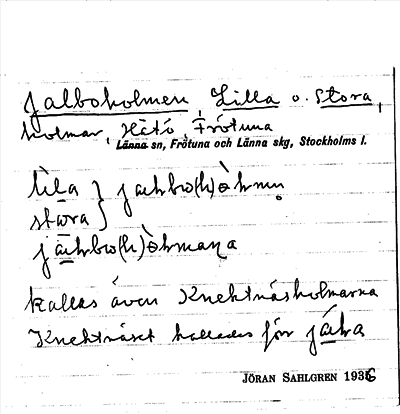 Jalboholmen, Lilla o. Stora,
holmar, Hätö, Frötuna
Länna sn, Frötuna och Länna skg, Stockholms l.
lìla } jaɩhbo(h)òhmn̥
stora }
jaɩhbo(h)òhmaṇa
kallas även Knektnäsholmarna
Knektnäset kallades förr
JÖRAN SAHLGREN 1936